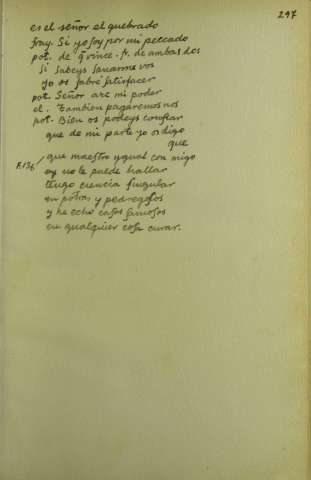 297
es el señor el quebrado
fray. Si yo soy por mi peccado
pot. de q̃ vince. fr. de ambas dos
Si Sabeys Sanarme vos
yo os sabré satisfacer
pot. Señor are mi poder
el. tambien pagaremos nos
pot. Bien os podeys confiar
que de mi parte yo os digo
que
F.136 / que maestro ygual con migo
oy no se puede hallar
tengo ciencia singular
en potras y pedregosos
y he echo casos famosos
en qualquier cosa curar.